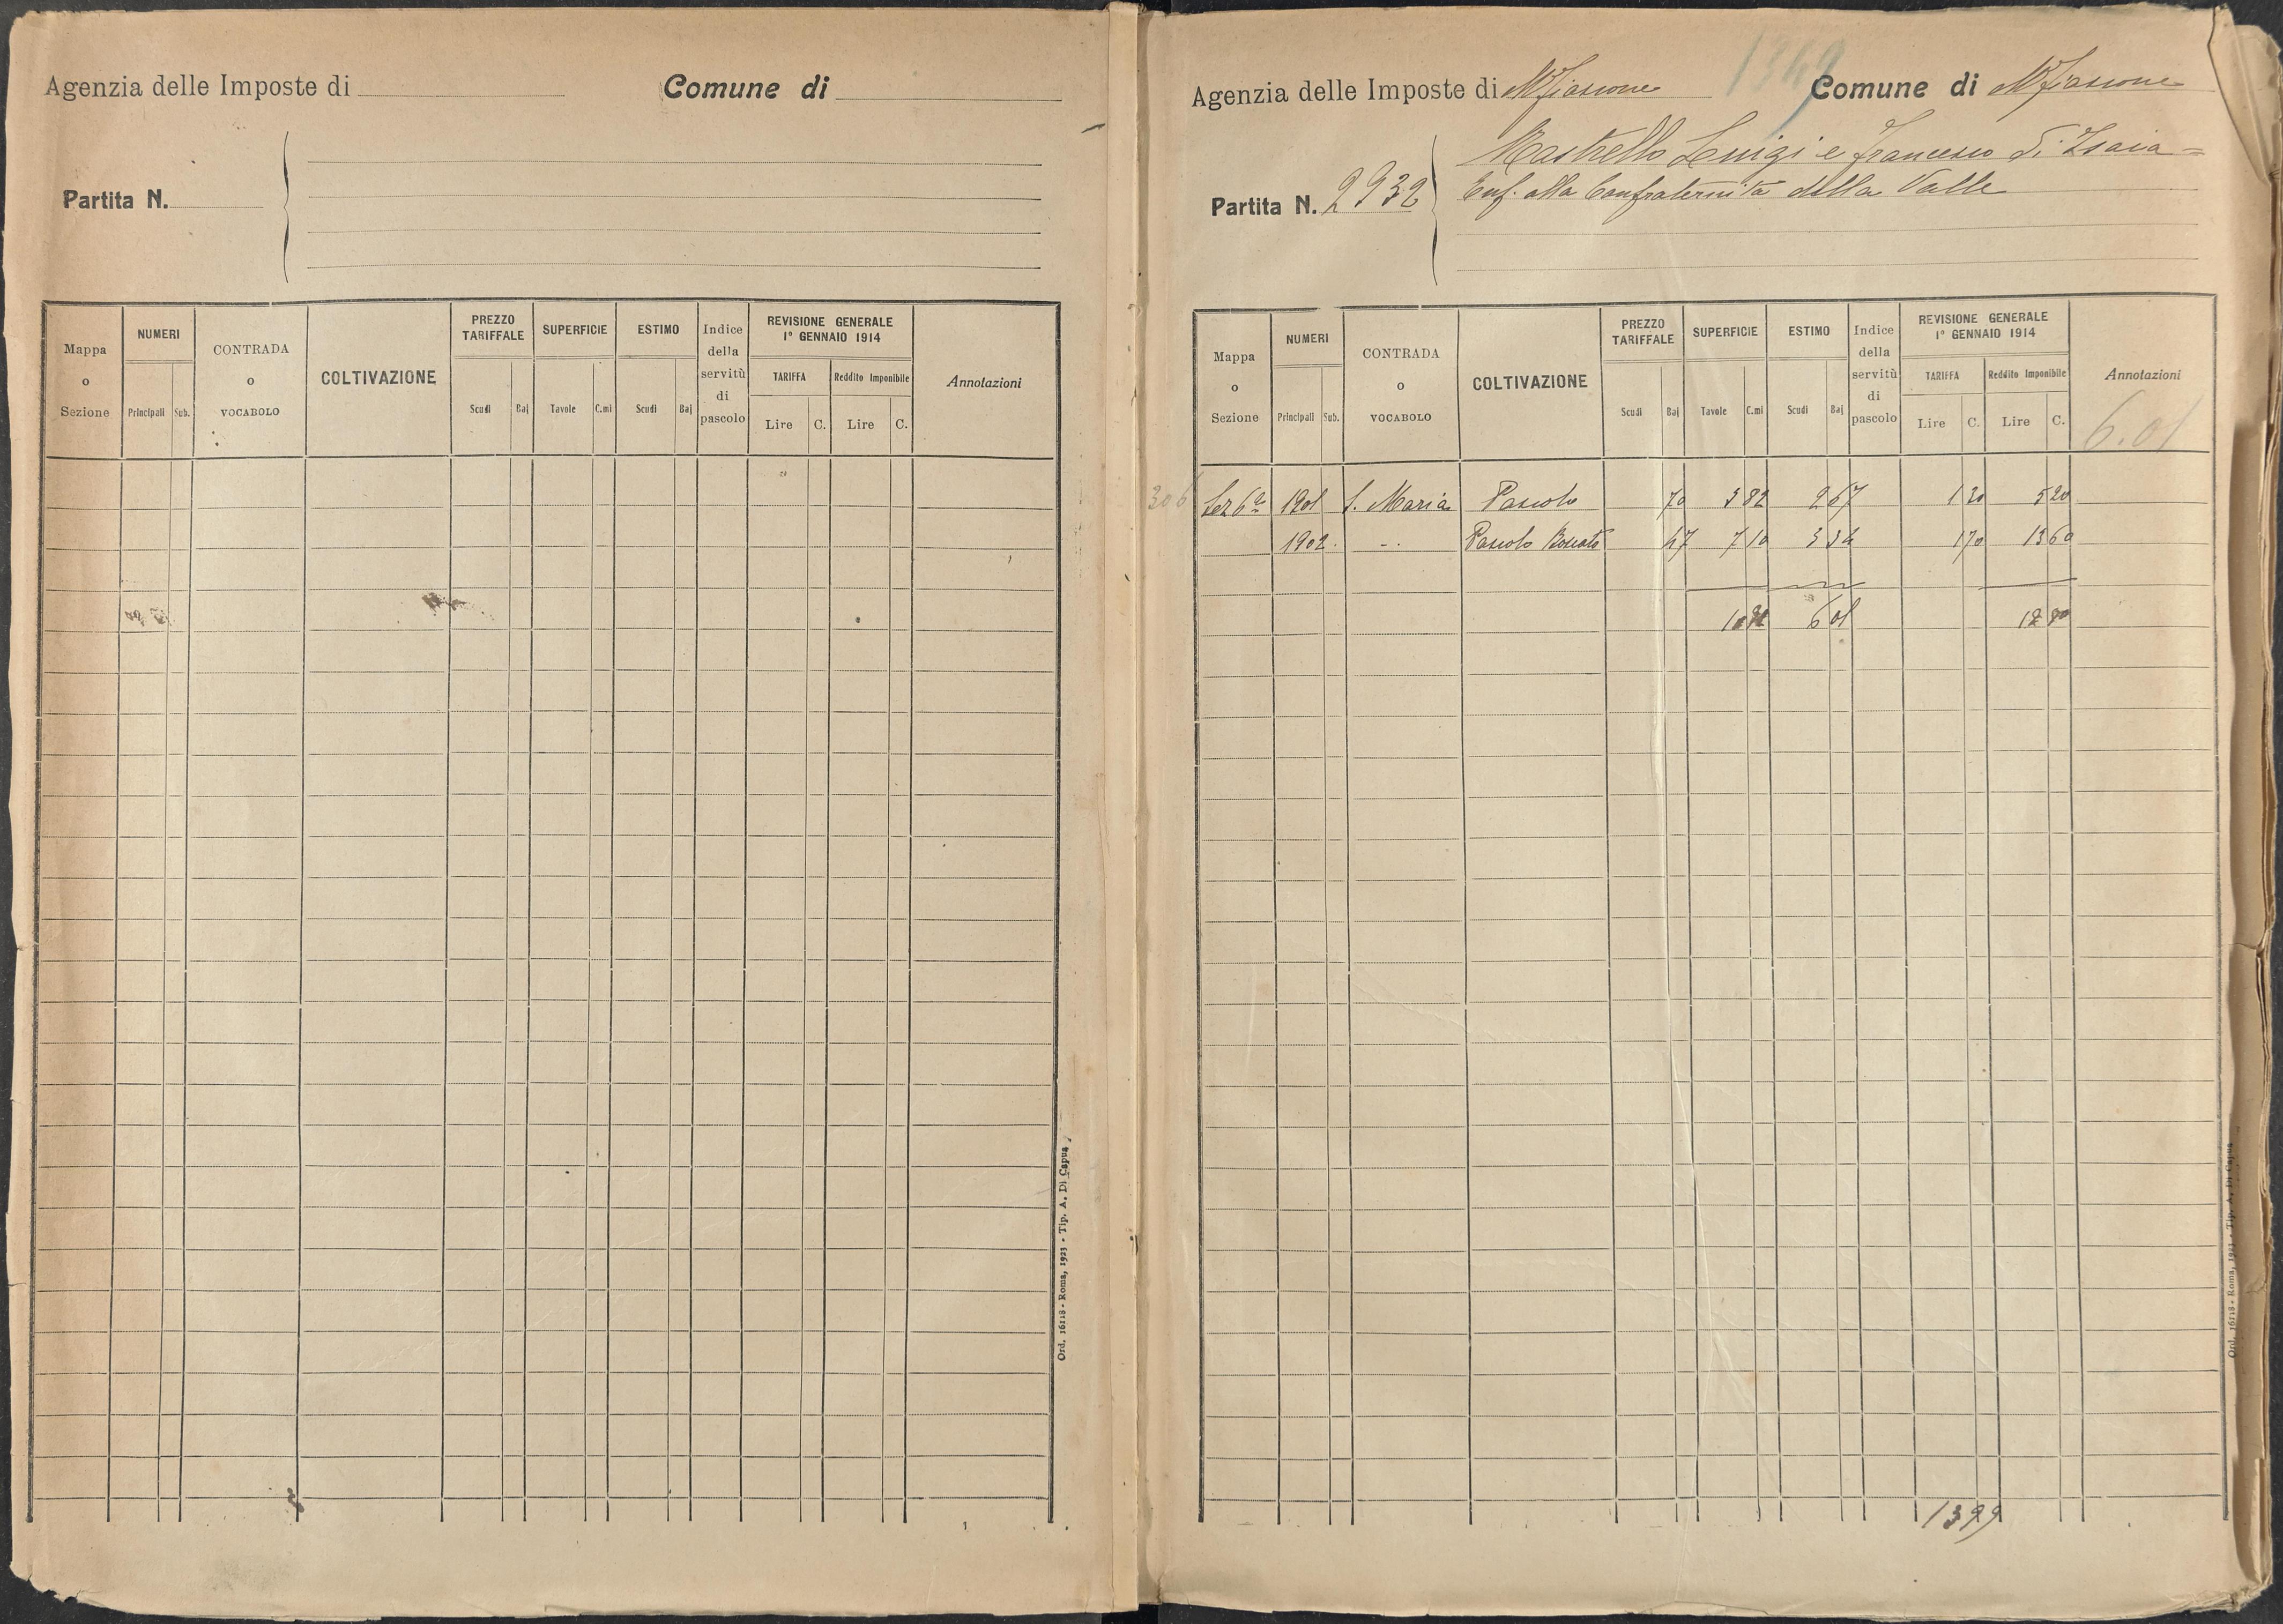 Agenzia delle Imposte di
Comune di
Partita N.
Mappa o Sezione
NUMERI
Principali
Sub.
CONTRADA o VOCABOLO
COLTIVAZIONE
PREZZO TARIFFALE
Scudi
Baj
SUPERFICIE
Tavole
C.mi
ESTIMO
Scudi
Baj
Indice della servitù di pascolo
REVISIONE GENERALE
1° GENNAIO 1914
TARIFFA
Lire
C.
Reddito Imponibile
Lire
C.
Annotazioni
Ord. 16118 - Roma, 1923 - Tip. A. Di Capua
1349
Agenzia delle Imposte di Mfiascone
Comune di Mfiascone
Partita N. 2932
Mastrello Luigi e Francesco di Isaia =
Enf. alla Confraternita della Valle
Mappa o Sezione
NUMERI
Principali
Sub.
CONTRADA o VOCABOLO
COLTIVAZIONE
PREZZO TARIFFALE
Scudi
Baj
SUPERFICIE
Tavole
C.mi
ESTIMO
Scudi
Baj
Indice della servitù di pascolo
REVISIONE GENERALE
1° GENNAIO 1914
TARIFFA
Lire
C.
Reddito Imponibile
Lire
C.
Annotazioni
6.01
306 Sez 6a 1901 S. Maria Pascolo 70 3 82 2 67 1 30 5 20
1902 - Pascolo Boscato 47 7 10 3 34 1 70 13 60
10 92 6 01
1399
Ord. 16118 - Roma, 1923 - Tip. A. Di Capua